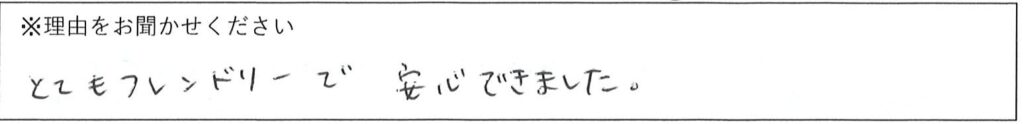 ※理由をお聞かせください
とてもフレンドリーで 安心できました。